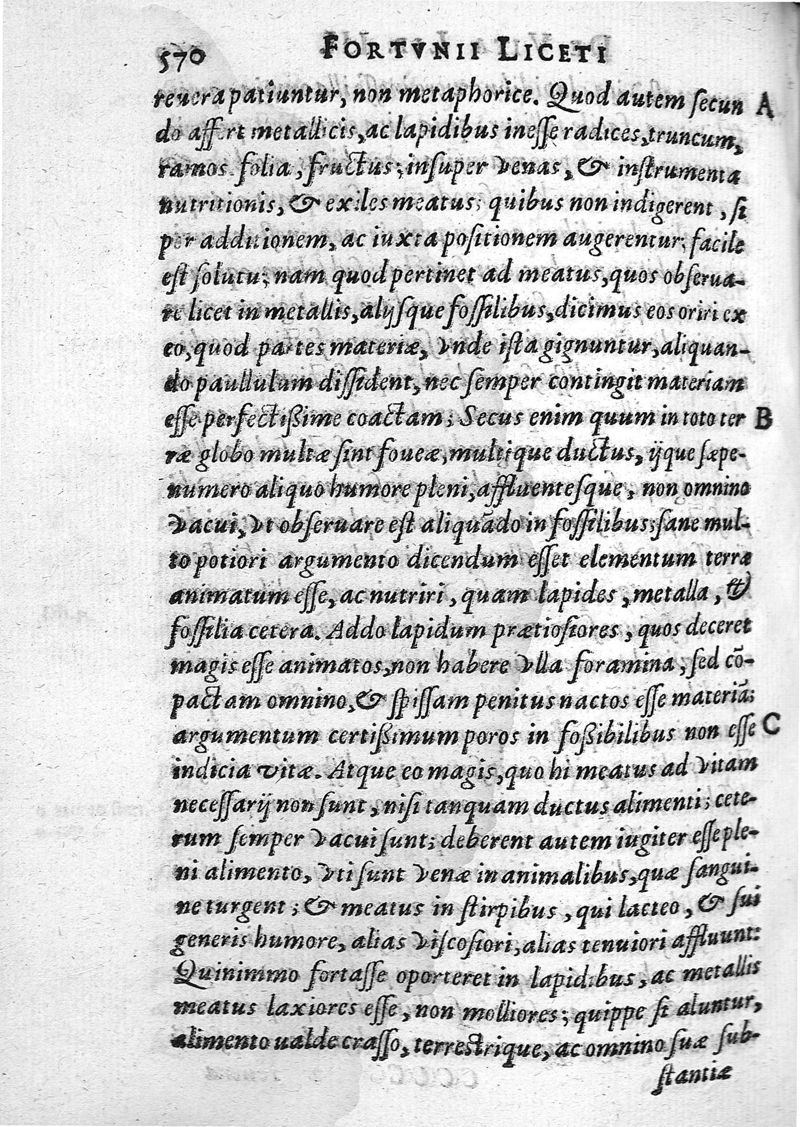 570 FORTVNII LICETI
reuera patiuntur, non metaphorice. Quod autem secun A
do affert metallicis, ac lapidibus inesse radices, truncum,
ramos folia, fructus; insuper venas, & instrumenta
nutritionis, & exiles meatus; quibus non indigerent, si
per additionem, ac iuxta positionem augerentur; facile
est solutu; nam quod pertinet ad meatus, quos obserua-
re licet in metallis, alijsque fossilibus, dicimus eos oriri ex
eo, quod partes materiæ, vnde ista gignuntur, aliquan-
do paullulum dissident, nec semper contingit materiam
esse perfectißime coactam; Secus enim quum in toto ter B
ræ globo multæ sint foueæ, multique ductus, ijque sæpe-
numero aliquo humore pleni, affluentesque, non omnino
vacui, vt obseruare est aliquãdo in fossilibus; sane mul-
to potiori argumento dicendum esset elementum terræ
animatum esse, ac nutriri, quam lapides, metalla, &
fossilia cetera. Addo lapidum prætiosiores, quos deceret
magis esse animatos, non habere vlla foramina, sed cõ-
pactam omnino, & spissam penitus nactos esse materiã;
argumentum certißimum poros in foßibilibus non esse C
indicia vitæ. Atque eo magis, quo hi meatus ad vitam
necessarij non sunt, nisi tanquam ductus alimenti; cete-
rum semper vacui sunt; deberent autem iugiter esse ple-
ni alimento, vti sunt venæ in animalibus, quæ sangui-
ne turgent; & meatus in stirpibus, qui lacteo, & sui
generis humore, alias viscosiori, alias tenuiori affluunt:
Quinimmo fortasse oporteret in lapidibus, ac metallis
meatus laxiores esse, non molliores; quippe si aluntur,
alimento ualde crasso, terrestrique, ac omnino suæ sub-
stantiæ